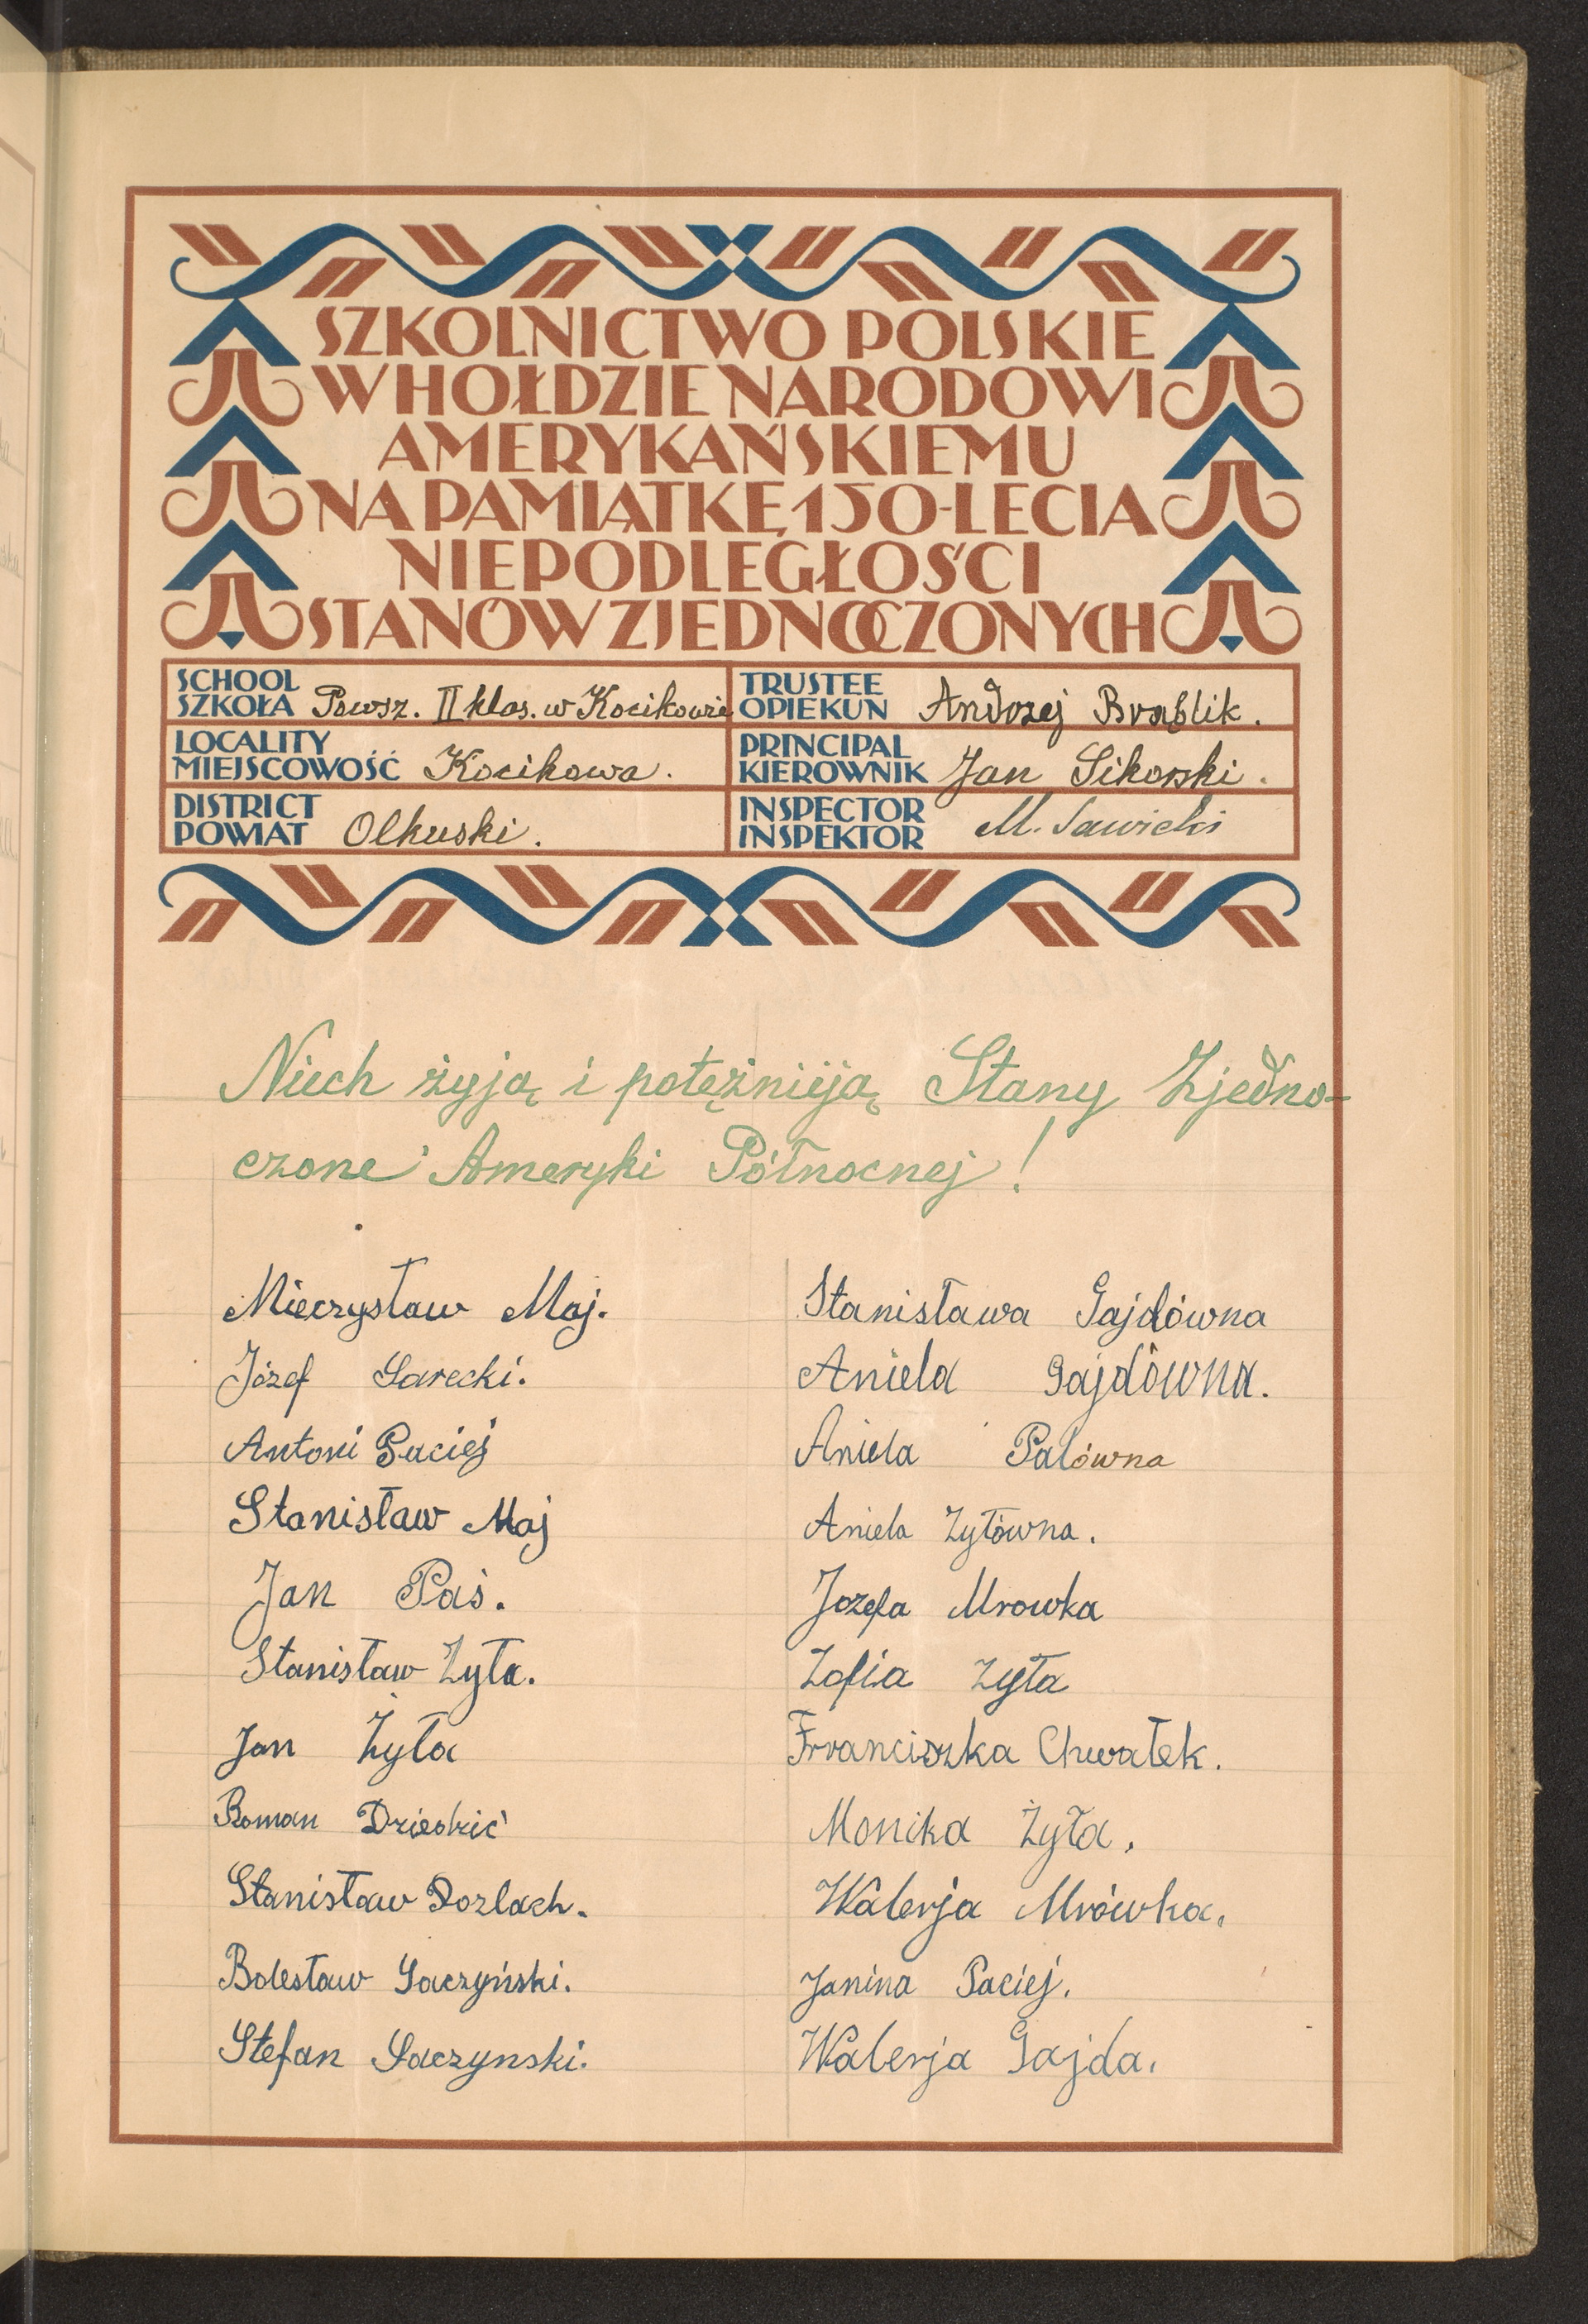 SZKOLNICTWO POLSKIE
W HOŁDZIE NARODOWI
AMERYKAŃSKIEMU
NA PAMIĄTKĘ 150-LECIA
NIEPODLEGŁOŚCI
STANÓW ZJEDNOCZONYCH
SCHOOL
SZKOŁA Powsz. II klas. w Kocikowie
TRUSTEE
OPIEKUN Andrzej Brablik.
LOCALITY
MIEJSCOWOŚĆ Kocikowa.
PRINCIPAL
KIEROWNIK Jan Sikorski.
DISTRICT
POWIAT Olkuski.
INSPECTOR
INSPEKTOR M. Sawicki
Niech żyją i potężnieją Stany Zjedno-
czone Ameryki Północnej!
Mieczysław Maj.
Józef Sarecki.
Antoni Paciej
Stanisław Maj
Jan Paś.
Stanisław Zyła.
Jan Żyła
Roman Dziedzic
Stanisław Dorlach.
Bolesław Saczyński.
Stefan Saczynski.
Stanisława Gajdówna
Aniela Gajdówna.
Aniela Palówna
Aniela Zyłówna.
Jozefa Mrowka
Zofia Zyła
Franciszka Chwałek.
Monika Żyła.
Walerja Mrówka.
Janina Paciej.
Walerja Gajda.